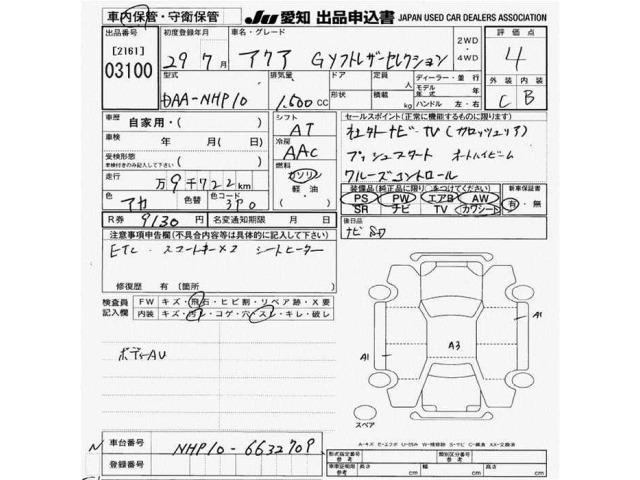 車内保管・守衛保管
JU 愛知 出品申込書 JAPAN USED CAR DEALERS ASSOCIATION
出品番号 [2161] 03100
初度登録年月 29年 7月
車名・グレード アクア Gソフトレザーセレクション
2WD・4WD
評価点 4
型式 DAA-NHP10
排気量 1,500 CC
ドア 形状
定員 人 積載 kg
ディーラー・並行
モデル年式 年
ハンドル 左・右
外装 C 内装 B
車歴 自家用・( )
車検 年 月(日)
受検形態 ( )
車検付きのみ記入して下さい
走行 万 9千722 km
色 アカ 色替 色コード 3P0
シフト AT
冷房 AAC
燃料 ガソリン 軽油 ・( )
セールスポイント(正常に機能するものに限ります)
社外ナビ・TV(カロッツェリア)
プッシュスタート オートハイビーム
クルーズコントロール
装備品(純正品に限り○をつけてください)
PS PW エアB AW
SR ナビ TV カワシート
新車保証書 有・無
R券 9130円 名変通知期限 月 日
後日品
ナビSD
注意事項申告欄(不具合内容等は具体的に記入して下さい)
ETC スマートキー×2 シートヒーター
修復歴 有 〔箇所 〕
検査員記入欄
FW キズ・飛石・ヒビ割・リペア跡・X要
内装 キズ・汚レ・コゲ・穴・スレ・キレ・破レ
ボディAU
A1
A3
A1
スペア
A-キズ E-エクボ U-凹み W-補修跡 S-サビ C-腐食 XX-交換済
N
車台番号 NHP10-6632709
登録番号
形式指定番号 参考
類別区分番号 参考
車車証明用 参考 長さ cm 幅 cm 高さ cm